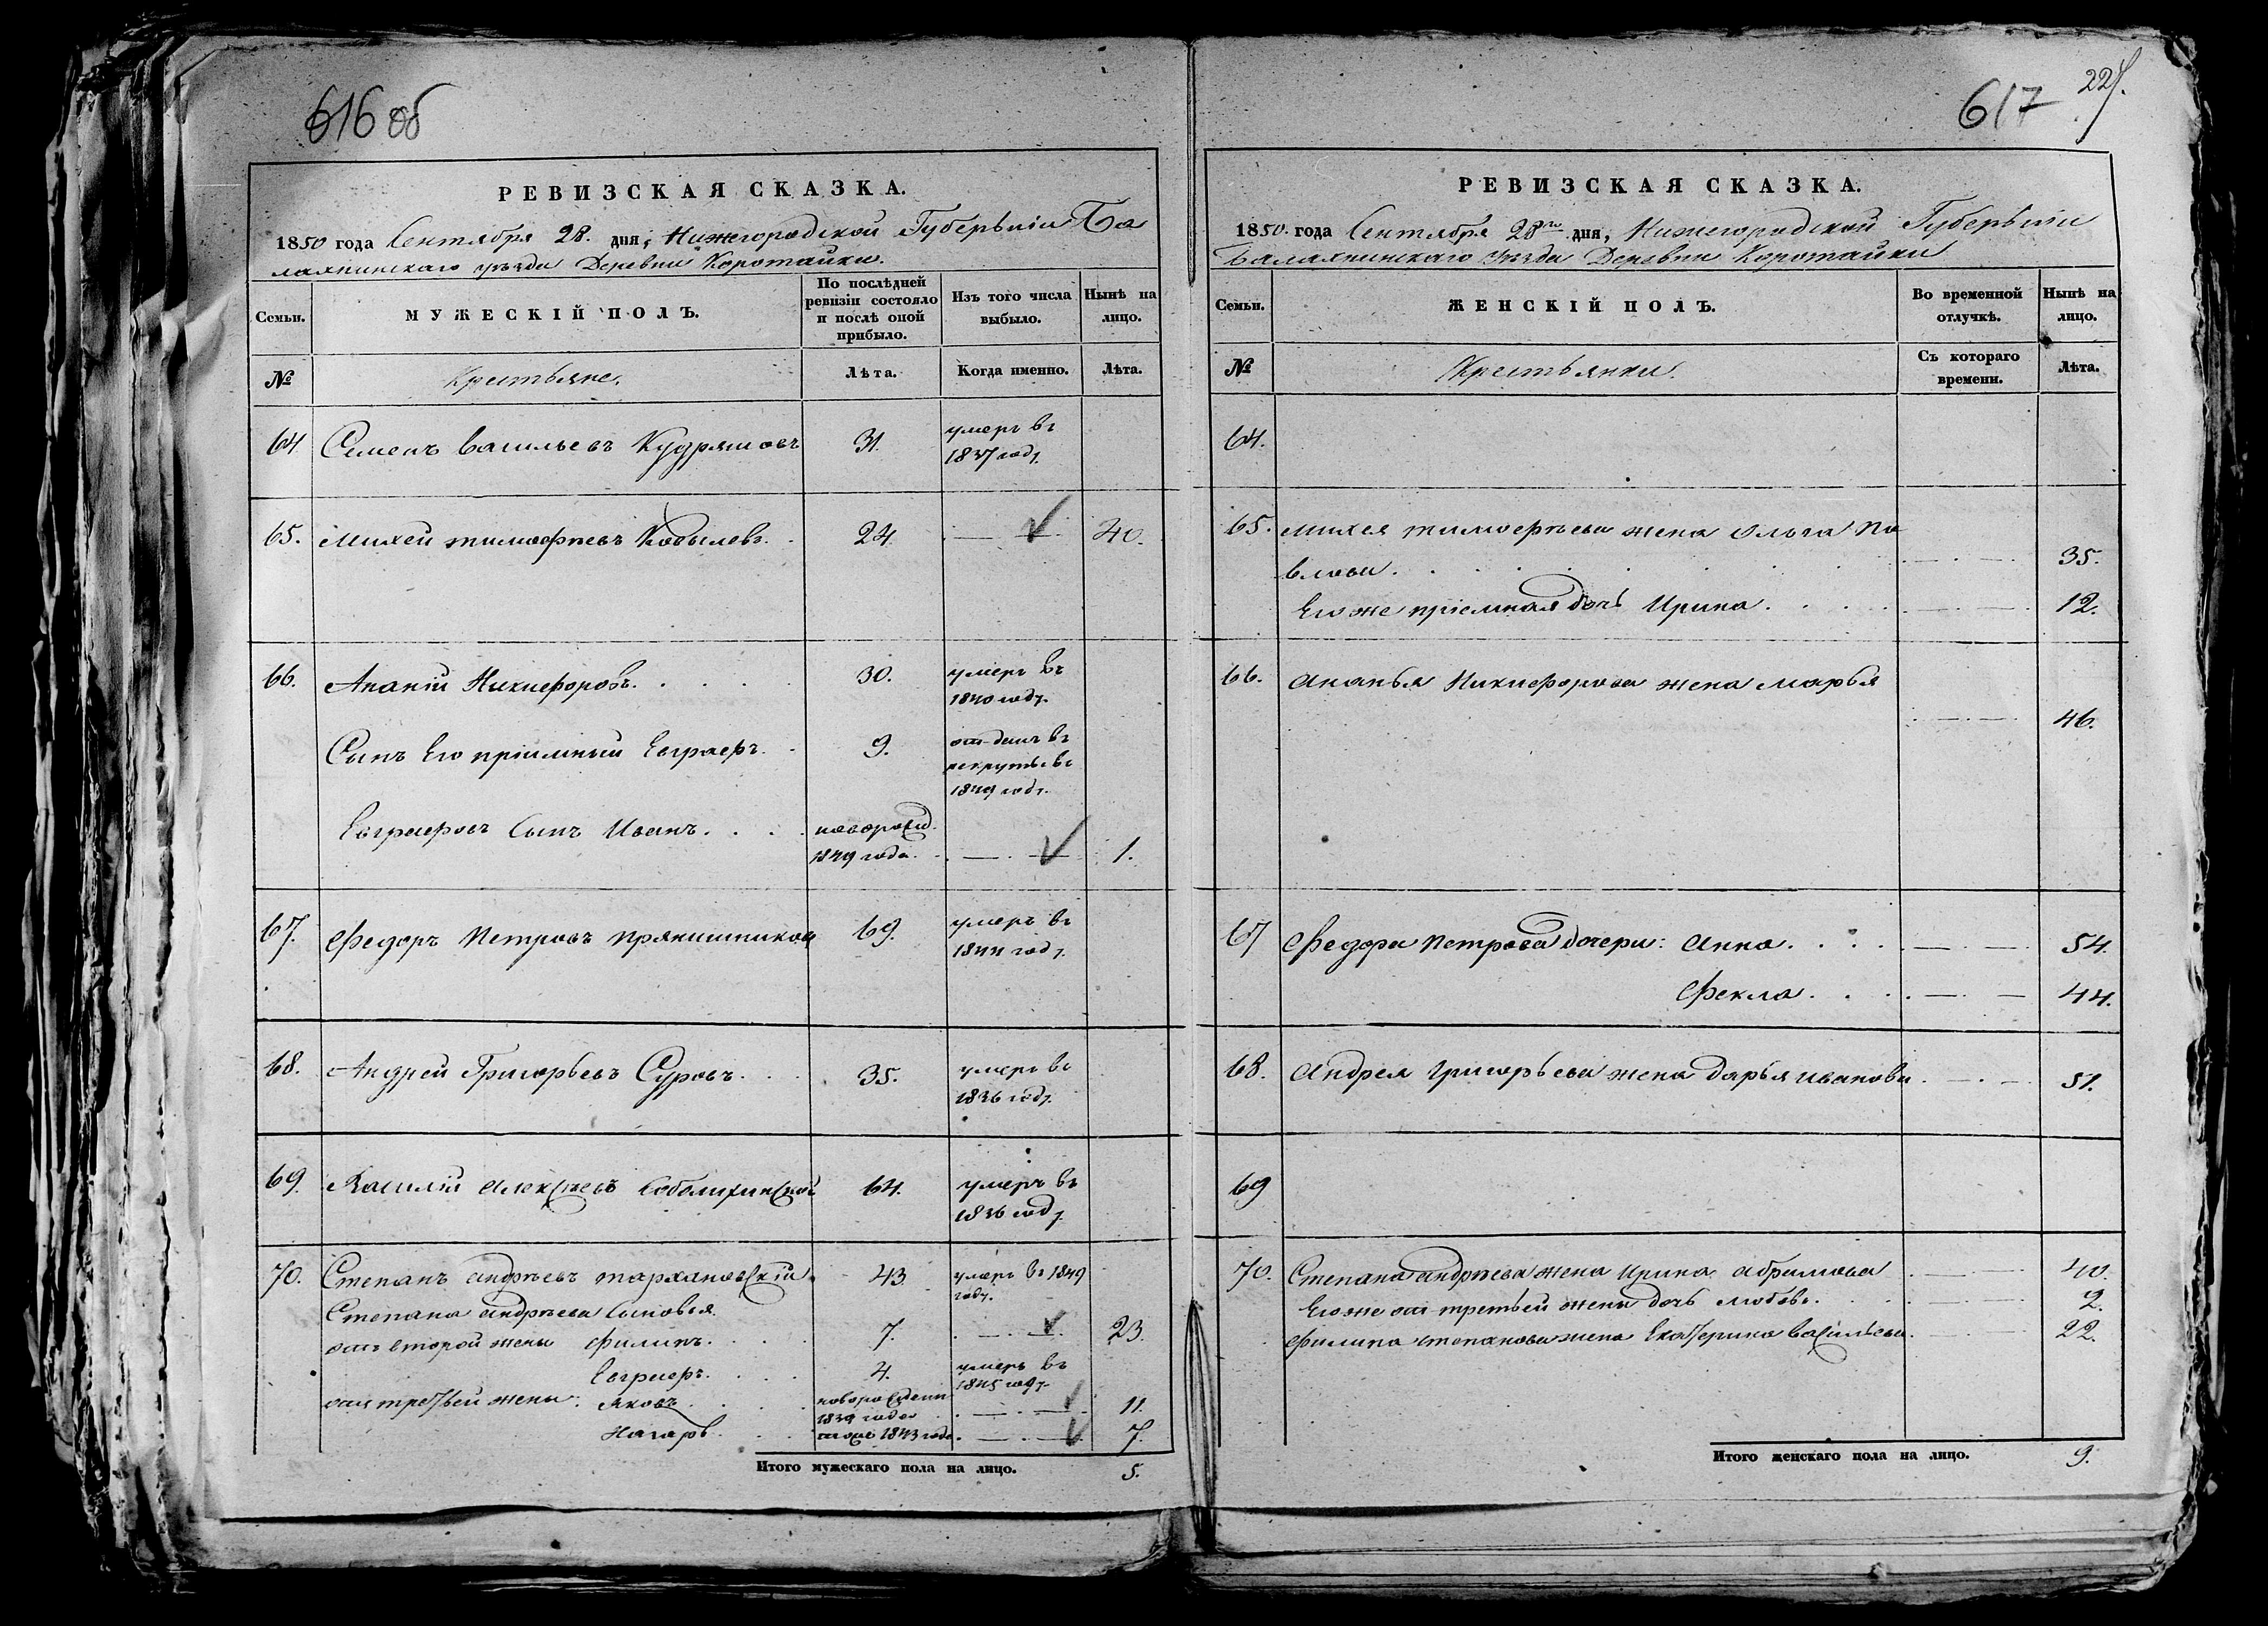 616 об
РЕВИЗСКАЯ СКАЗКА.
1850 года Сентября 28. дня, Нижегородской Губерьнiи Ба
лахнинскаго уѣзда Деревни Коротайки.
Семьи.
МУЖЕСКІЙ ПОЛЪ.
По послѣдней ревизіи состояло и послѣ оной прибыло.
Изъ того числа выбыло.
Нынѣ на лицо.
№
Крестьяне.
Лѣта.
Когда именно.
Лѣта.
64 Семенъ Васильевъ Кудряшовъ 31. умеръ въ
1837 году.
65. Михей Тимофѣевъ Кобылевъ. 24 40.
66. Ананій Никифоровъ. 30. умеръ въ
1840 году.
Сынъ Его пріимный Евграфъ. 9. отъ-данъ въ
рекруты въ
1849 году.
Евграфовъ Сынъ Иванъ. новорожд.
1849 года. 1.
67. Федоръ Петровъ Прянишников 69. умеръ въ
1844 году.
68. Андрей Григорьевъ Суровъ. 35. умеръ въ
1836 году.
69. Василій Алексѣевъ 64. умеръ въ
1836 году
70. Степанъ Андрѣевъ Тархановскій. 43 умеръ въ 1849
году.
Степана Андрѣева Сыновья
отъ второй жены Филипъ. 7. 23.
Евграфъ. 4. умеръ въ
1845 году.
отъ третьей жены: Яковъ. новорожденн
1839 года 11.
Назаръ. тоже 1843 года. 7.
Итого мужескаго пола на лицо. 5.
617
227.
РЕВИЗСКАЯ СКАЗКА.
1850. года Сентября 28го дня, Нижегородской Губерьнiи
Балахнинскаго уѣзда Деревни Коротайки
Семьи.
ЖЕНСКІЙ ПОЛЪ.
Во временной отлучкѣ.
Нынѣ на лицо.
№
Крестьянки.
Съ котораго времени.
Лѣта.
64.
65. Михея Тимофѣева жена Ольга Па
влова. 35.
Его же пріемная дочь Ирина. 12.
66. Ананья Никифорова жена Марья
46.
67 Федора Петрова дочери: Анна. 54.
Фекла. 44.
68. Андрея Григорьева жена Дарья Иванова 51.
69
70. Степана Андрѣева жена Ирина Абрамова 40.
Его же отъ третьей жены дочь Любовь. 2.
Филипа Степанова жена Екатерина Васильева. 22.
Итого женскаго пола на лицо. 9.